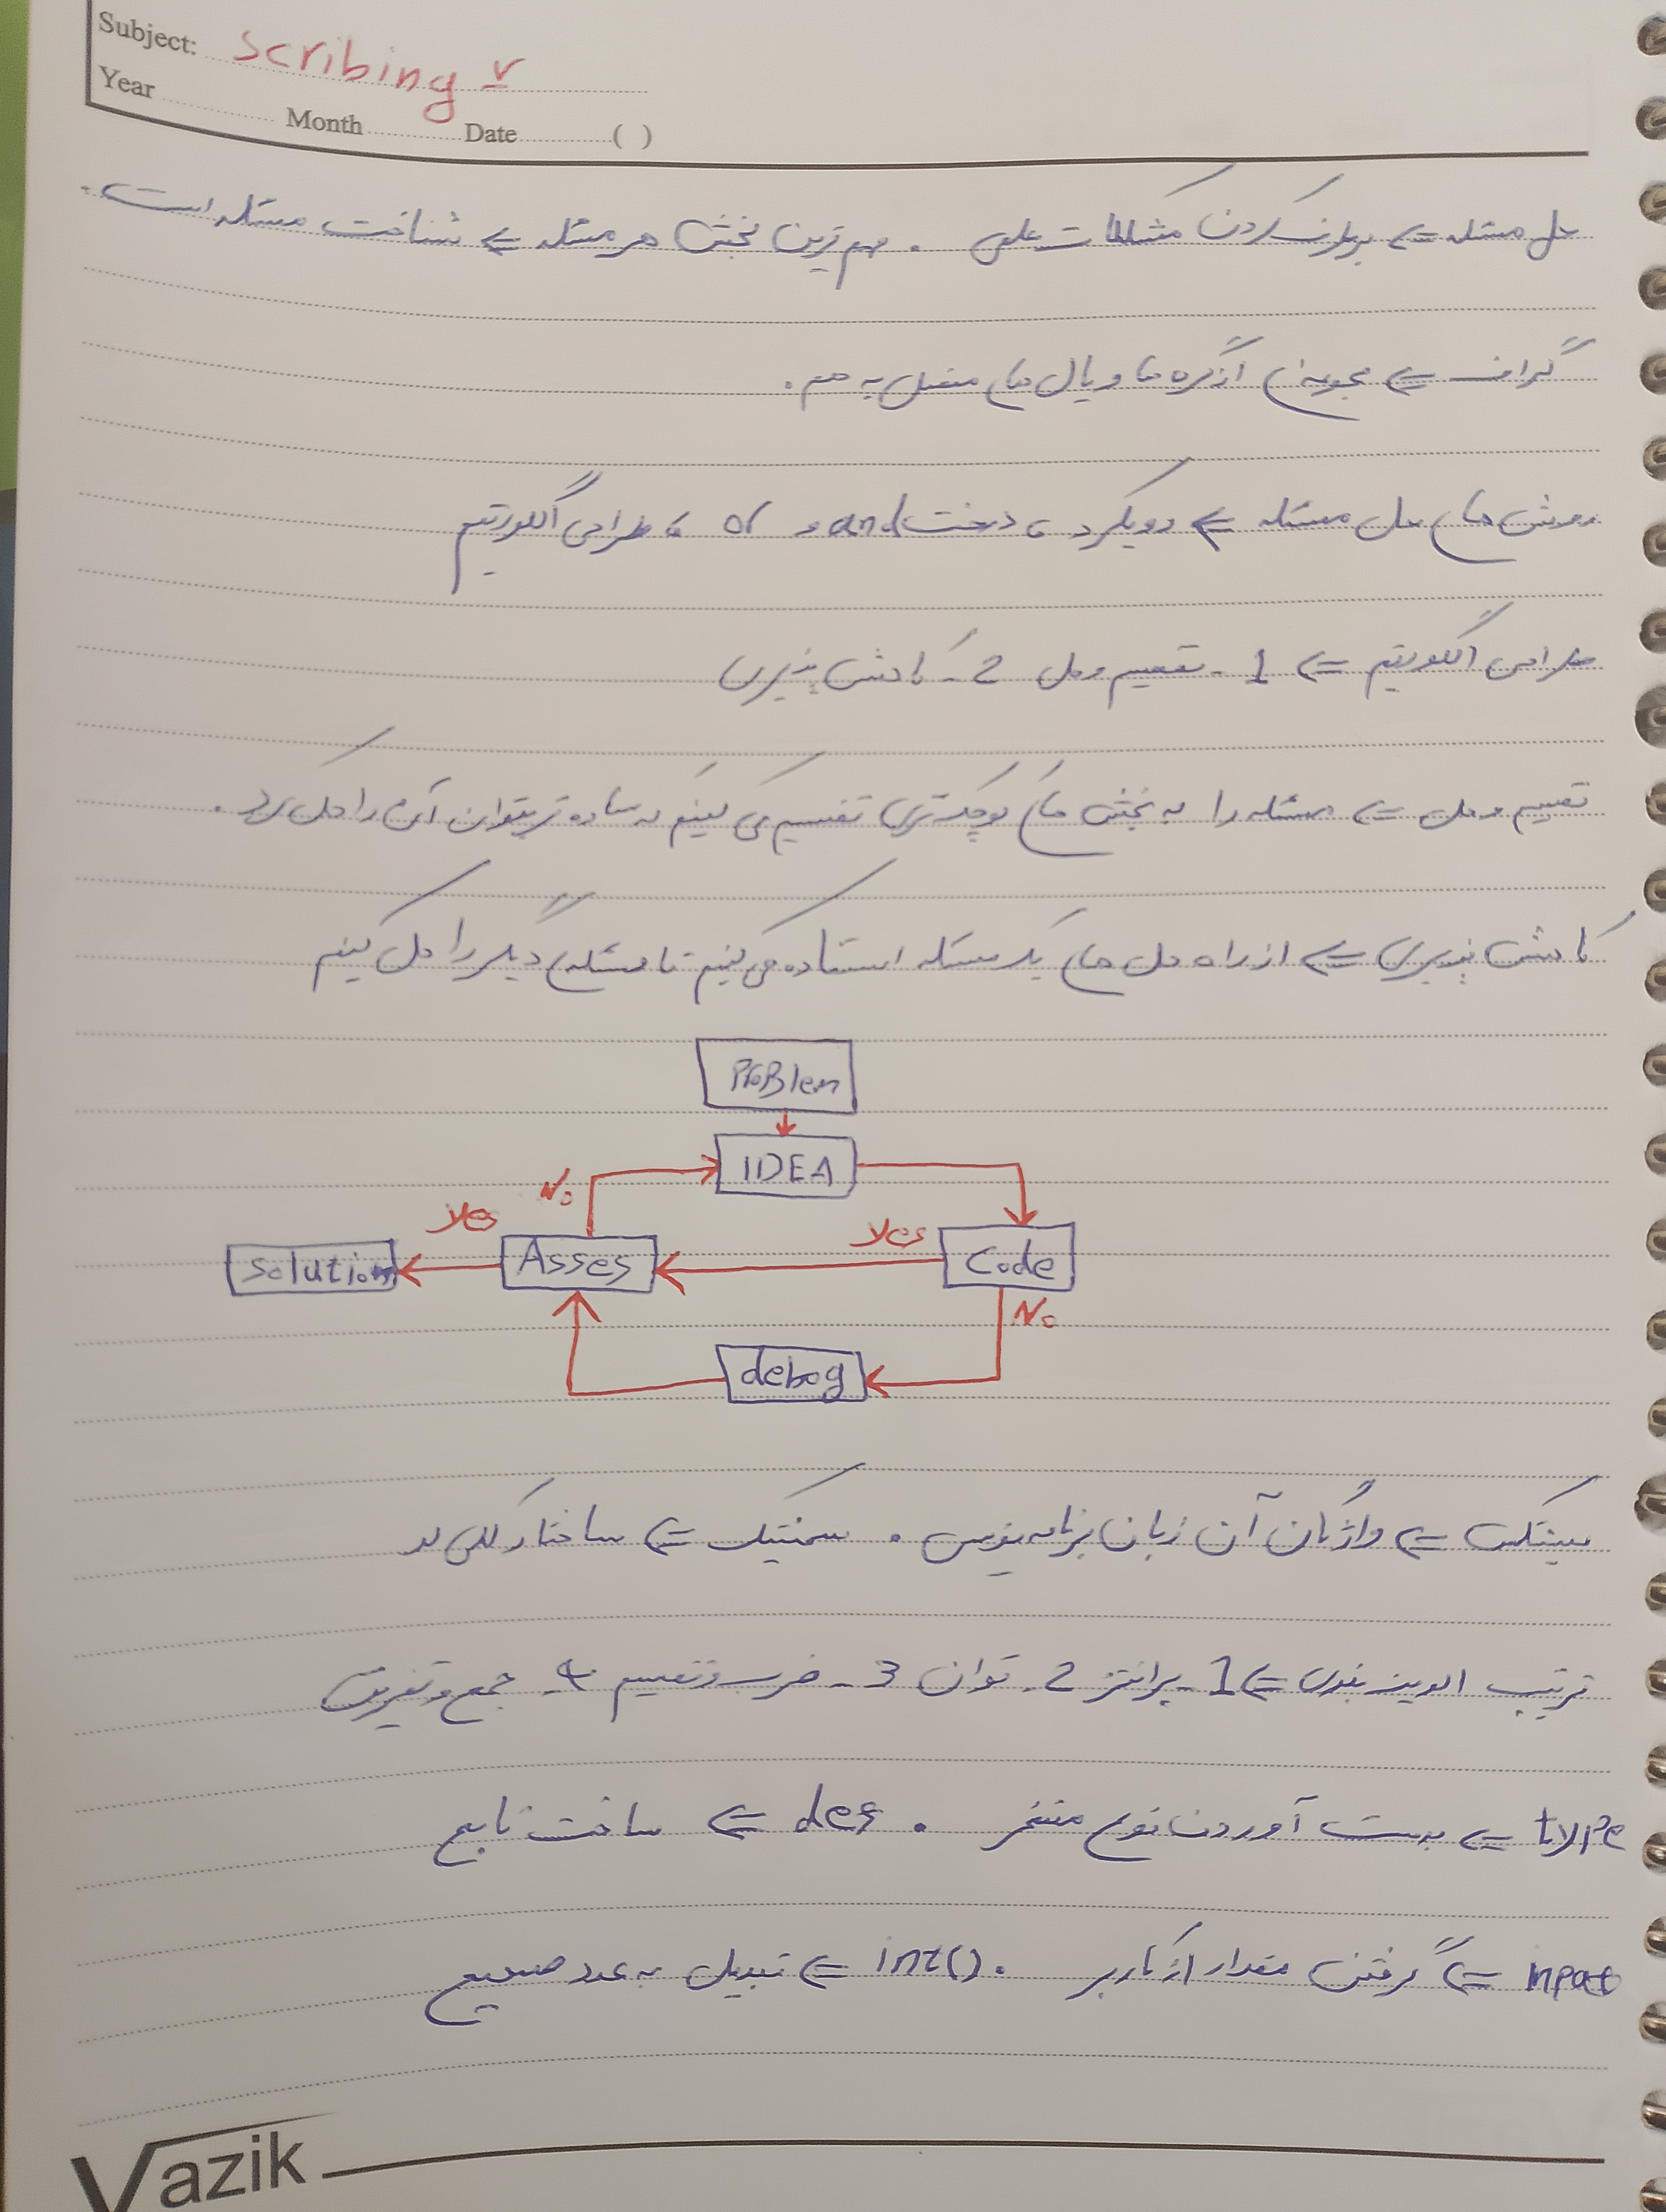 Subject: scribing ۲
Year Month Date ( )
حل مسئله ⇐ برطرف کردن مشکلات علمی . مهم ترین بخش هر مسئله ⇐ شناخت مسئله است.
گراف ⇐ مجموعه ای از گره ها و یال های متصل به هم.
روش های حل مسئله ⇐ رویکرد ، درخت and و or ، طراحی الگوریتم
طراحی الگوریتم ⇐ 1 - تقسیم و حل 2 - کاهش پذیری
تقسیم و حل ⇐ مسئله را به بخش های کوچک تری تقسیم می کنیم که ساده تر بتوان آن را حل کرد .
کاهش پذیری ⇐ از راه حل های یک مسئله استفاده می کنیم تا مسئله ی دیگر را حل کنیم
ProBlem
IDEA
No
yes
yes
solution
Asses
Code
No
debog
سینتکس ⇐ واژگان آن زبان برنامه نویسی . سمنتیک ⇐ ساختار کلی کد
ترتیب الویت بندی ⇐ 1 - پرانتز 2 - توان 3 - ضرب و تقسیم 4 - جمع و تفریق
type ⇐ بدست آوردن نوع متغیر . def ⇐ ساخت تابع
input ⇐ گرفتن مقدار از کاربر . int() ⇐ تبدیل به عدد صحیح
Vazik